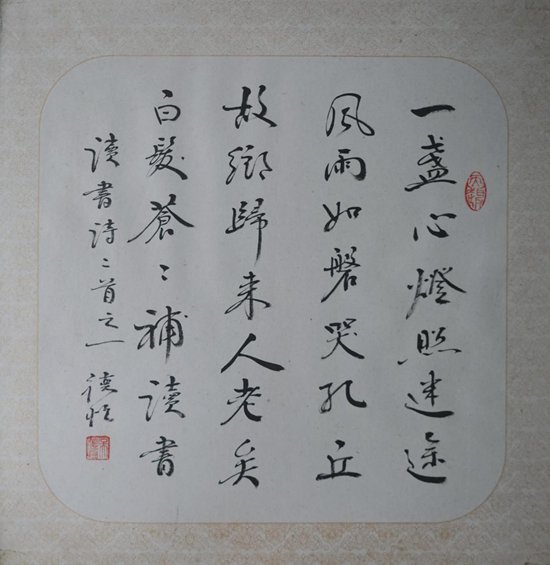 一盏心燈照迷途
風雨如磐哭孔丘
故鄉歸来人老矣
白髮蒼〻補讀書
读書詩〻首之一